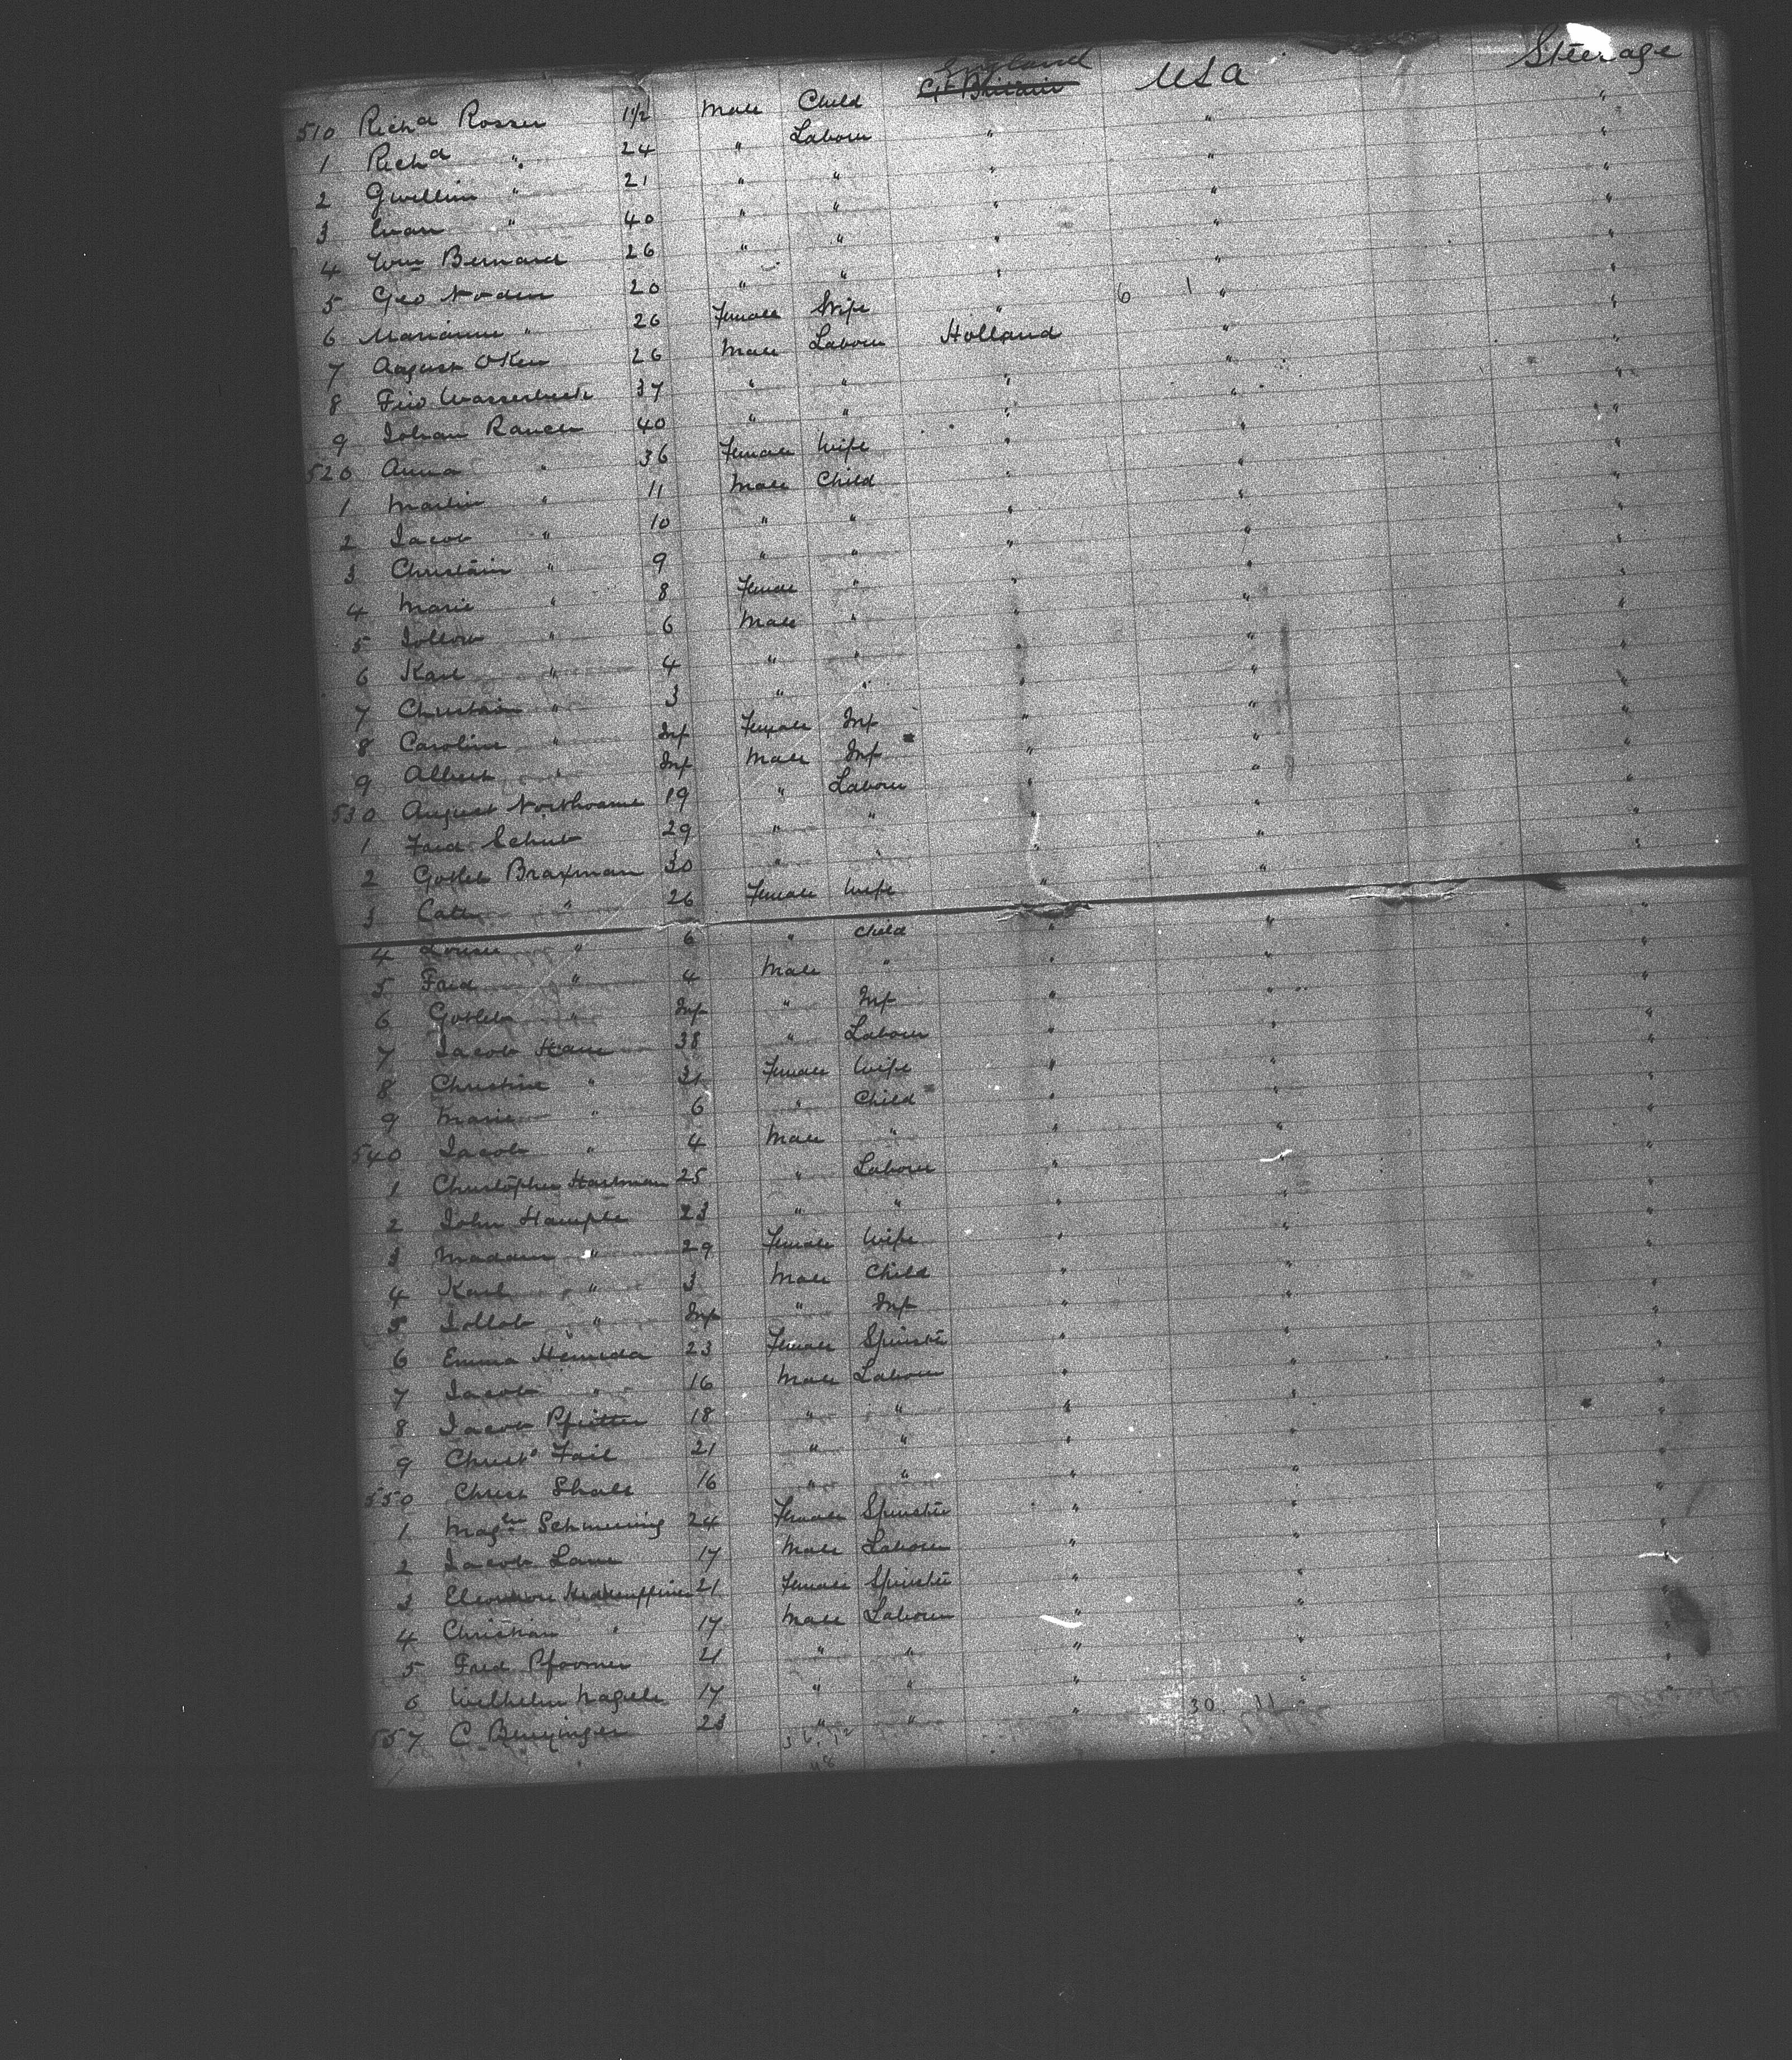 England
510 Richd Rosser 1½ Male Child Gt Britain USA Steerage
1 Richd " 24 " Labour " " "
2 Gwillim " 21 " " " " "
3 Evan " 40 " " " " "
4 Wm Bernard 26 " " " " "
5 Geo Noden 20 " " " " "
6 Marianne " 26 Female Wife " 6 1 " "
7 August Oken 26 Male Labour Holland " "
8 37 " " " " "
9 Johan Rauch 40 " " " " "
520 Anna " 36 Female Wife " " "
1 Martin " 11 Male Child " " "
2 Jacob " 10 " " " " "
3 Christain " 9 " " " " "
4 Marie " 8 Female " " " "
5 " 6 Male " " " "
6 Karl " 4 " " " " "
7 Christain " 3 " " " " "
8 Caroline " Inf Female Inf " " "
9 Albert " Inf Male Inf " " "
530 August 19 " Labour " " "
1 Fred Schub 29 " " " " "
2 Gotleb Braxman 30 " " " " "
3 Cath " 26 Female Wife " " "
4 Louise " 6 " Child " " "
5 Fred " 4 Male " " " "
6 Gotleb " Inf " Inf " " "
7 Jacob 38 " Labour " " "
8 Christine " Female Wife " " "
9 Marie " 6 " Child " " "
540 Jacob " 4 Male " " " "
1 Christopher Hartman 25 " Labour " " "
2 John Hample 23 " " " " "
3 Madam " 29 Female Wife " " "
4 Karl " 3 Male Child " " "
5 " Inf " Inf " " "
6 Emma 23 Female Spinster " " "
7 Jacob " 16 Male Labour " " "
8 Jacob 18 " " " " "
9 Christo Fail 21 " " " " "
550 Christ 16 " " " " "
1 Maglen 24 Female Spinster " " "
2 Jacob 17 Male Labour " " "
3 21 Female Spinster " " "
4 Christian " 17 Male Labour " " "
5 Fred 21 " " " " "
6 Wilhelm 17 " " " " "
557 C 23 " " " 30 11 " "